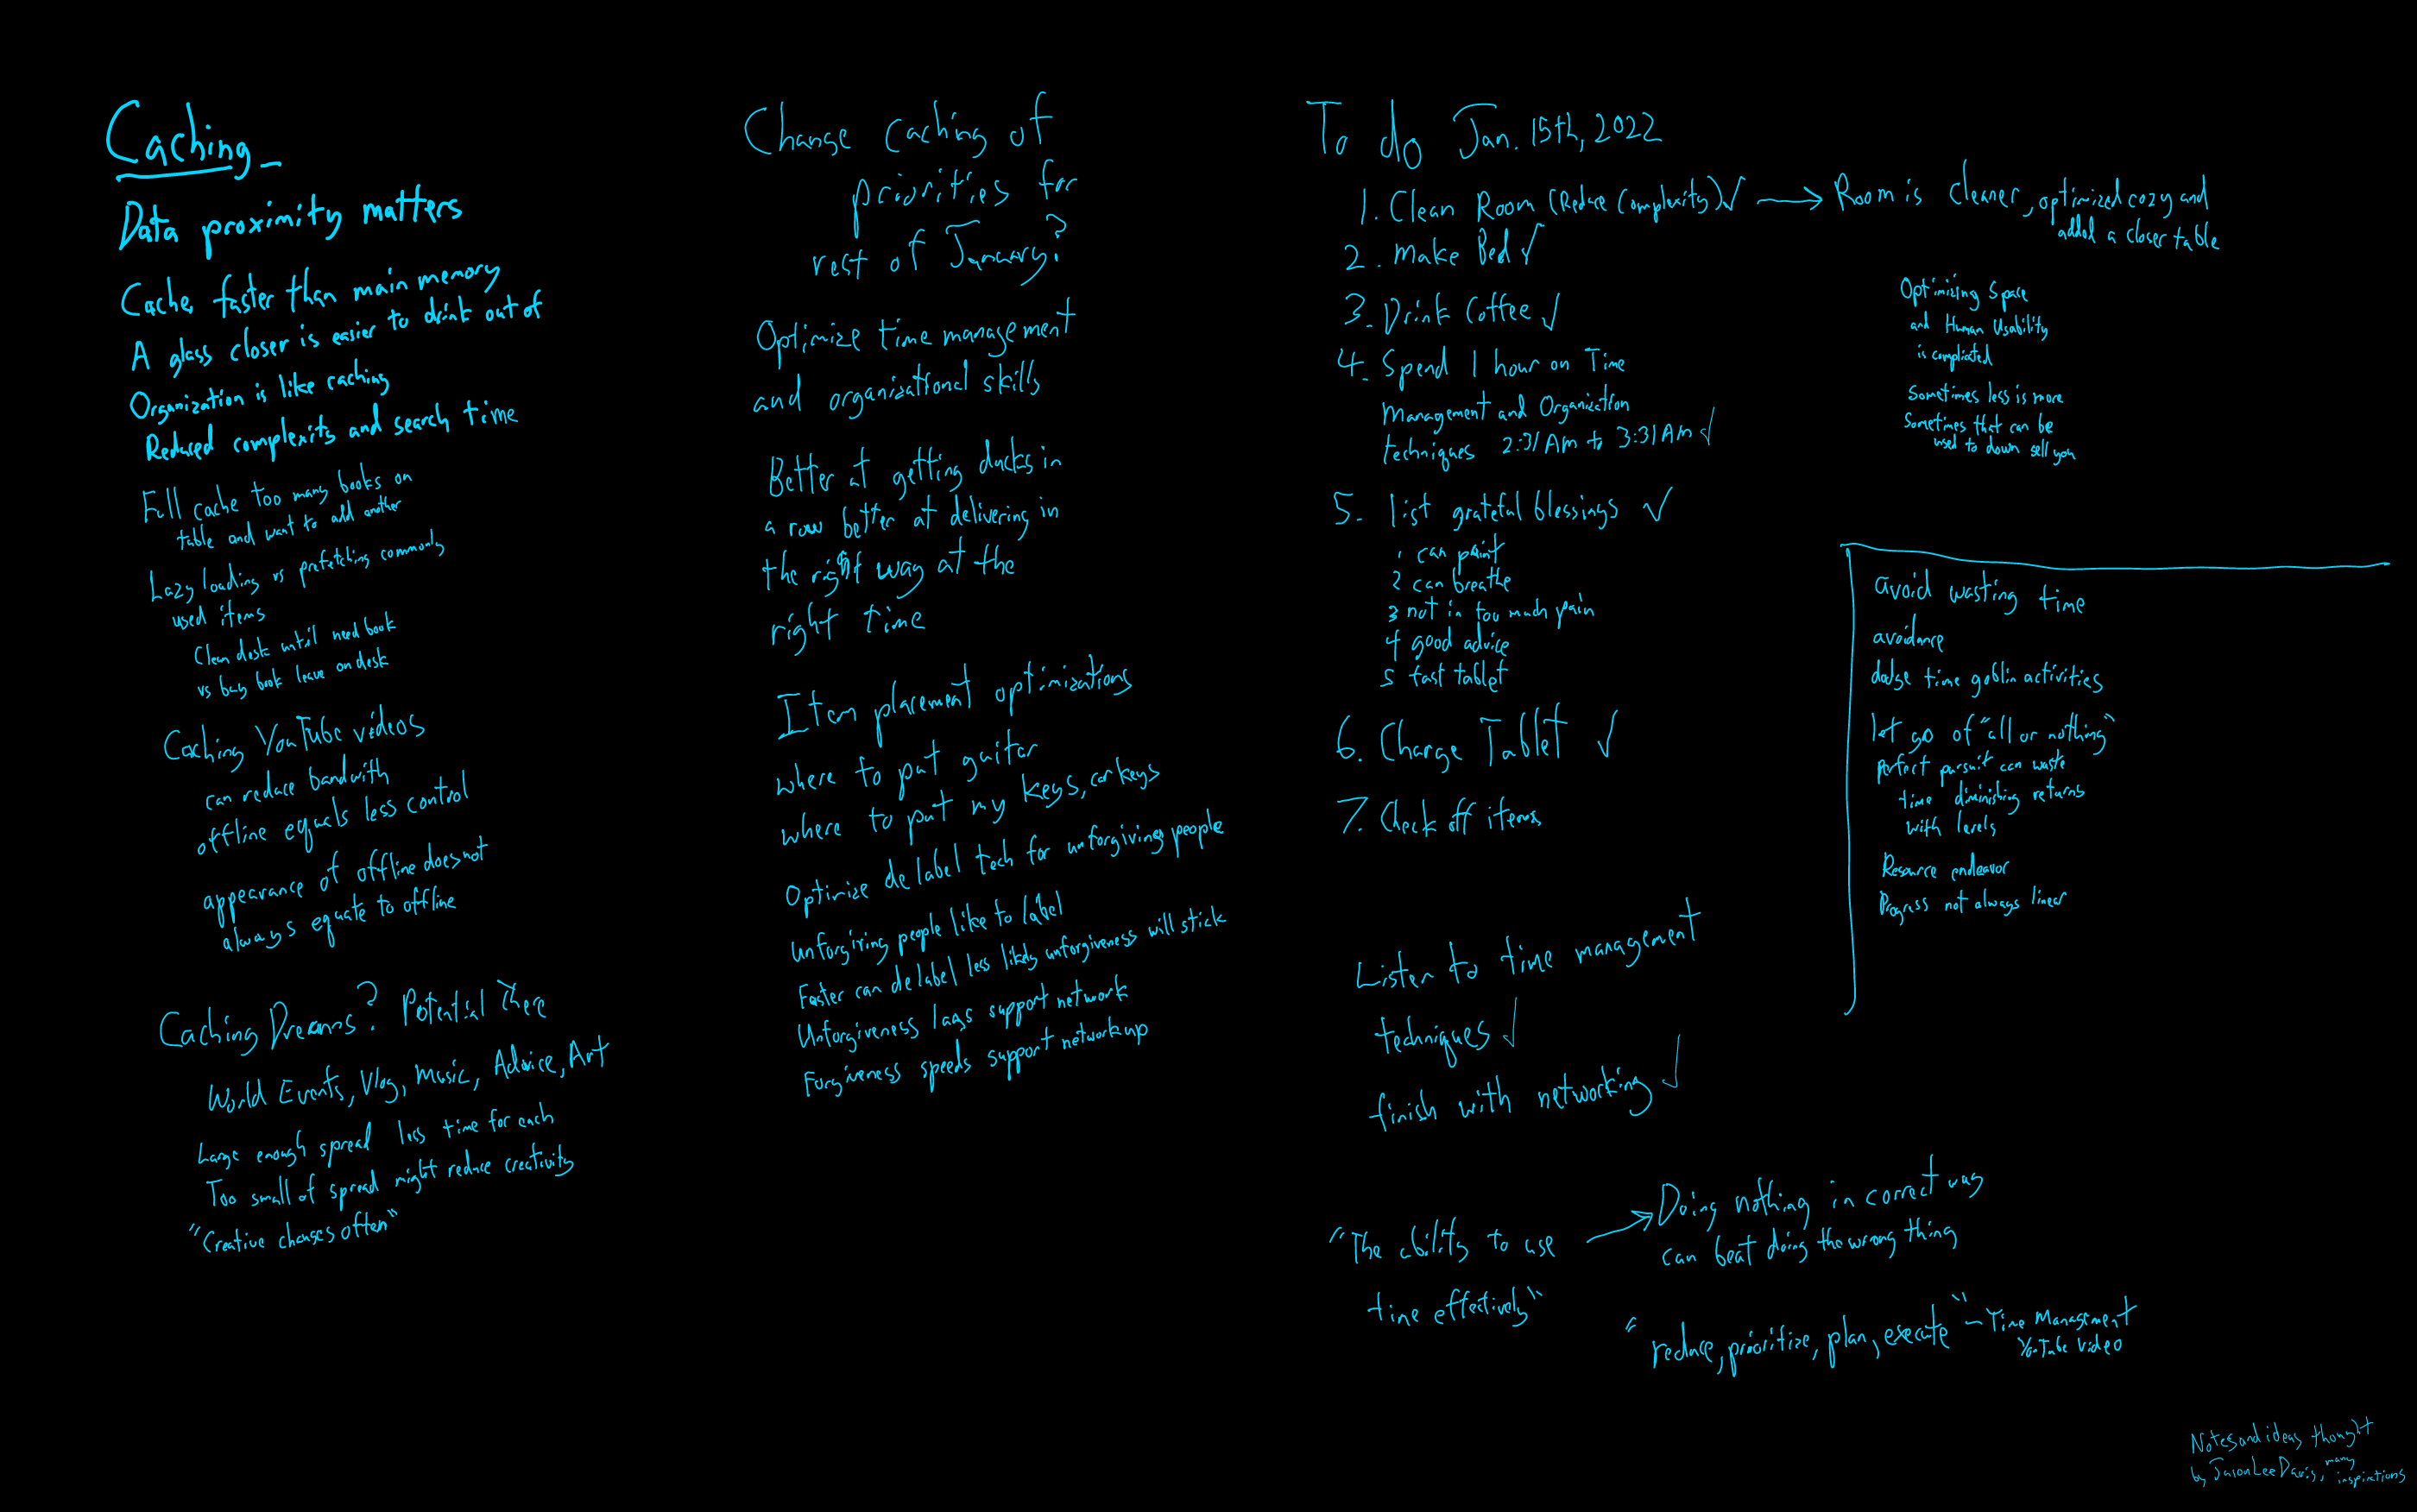 Caching -
Data proximity matters
Cache, faster than main memory
A glass closer is easier to drink out of
Organization is like caching
Reduced complexity and search time
Full cache too many books on
table and want to add another
Lazy loading vs prefetching commonly
used items
Clean desk until need book
vs buy book leave on desk
Caching YouTube videos
can reduce bandwith
offline equals less control
appearance of offline does not
always equate to offline
Caching Dreams? Potential There
World Events, Vlog, Music, Advice, Art
Large enough spread less time for each
Too small of spread might reduce creativity
"Creative changes often"
Change caching of
priorities for
rest of January?
Optimize time management
and organizational skills
Better at getting ducks in
a row better at delivering in
the right way at the
right time
Item placement optimizations
where to put guitar
where to put my keys, car keys
Optimize delabel tech for unforgiving people
Unforgiving people like to label
Faster can delabel less likely unforgiveness will stick
Unforgiveness lags support network
Forgiveness speeds support network up
To do Jan. 15th, 2022
1. Clean Room (Reduce Complexity) ✓ → Room is cleaner, optimized cozy and
added a closer table
2. Make Bed ✓
3. Drink Coffee ✓
4. Spend 1 hour on Time
Management and Organization
techniques 2:31 AM to 3:31 AM ✓
5. list grateful blessings ✓
1 can paint
2 can breathe
3 not in too much pain
4 good advice
5 fast tablet
6. Charge Tablet ✓
7. Check off items
Listen to time management
techniques ✓
finish with networking ✓
"The ability to use
time effectively"
→ Doing nothing in correct way
can beat doing the wrong thing
"reduce, prioritize, plan, execute" - Time Management
YouTube Video
Optimizing Space
and Human Usability
is complicated
Sometimes less is more
Sometimes that can be
used to down sell you
avoid wasting time
avoidance
dodge time goblin activities
let go of "all or nothing"
perfect pursuit can waste
time diminishing returns
with levels
Resource endeavor
Progress not always linear
Notes and ideas thought
by Jason Lee Davis, many
inspirations